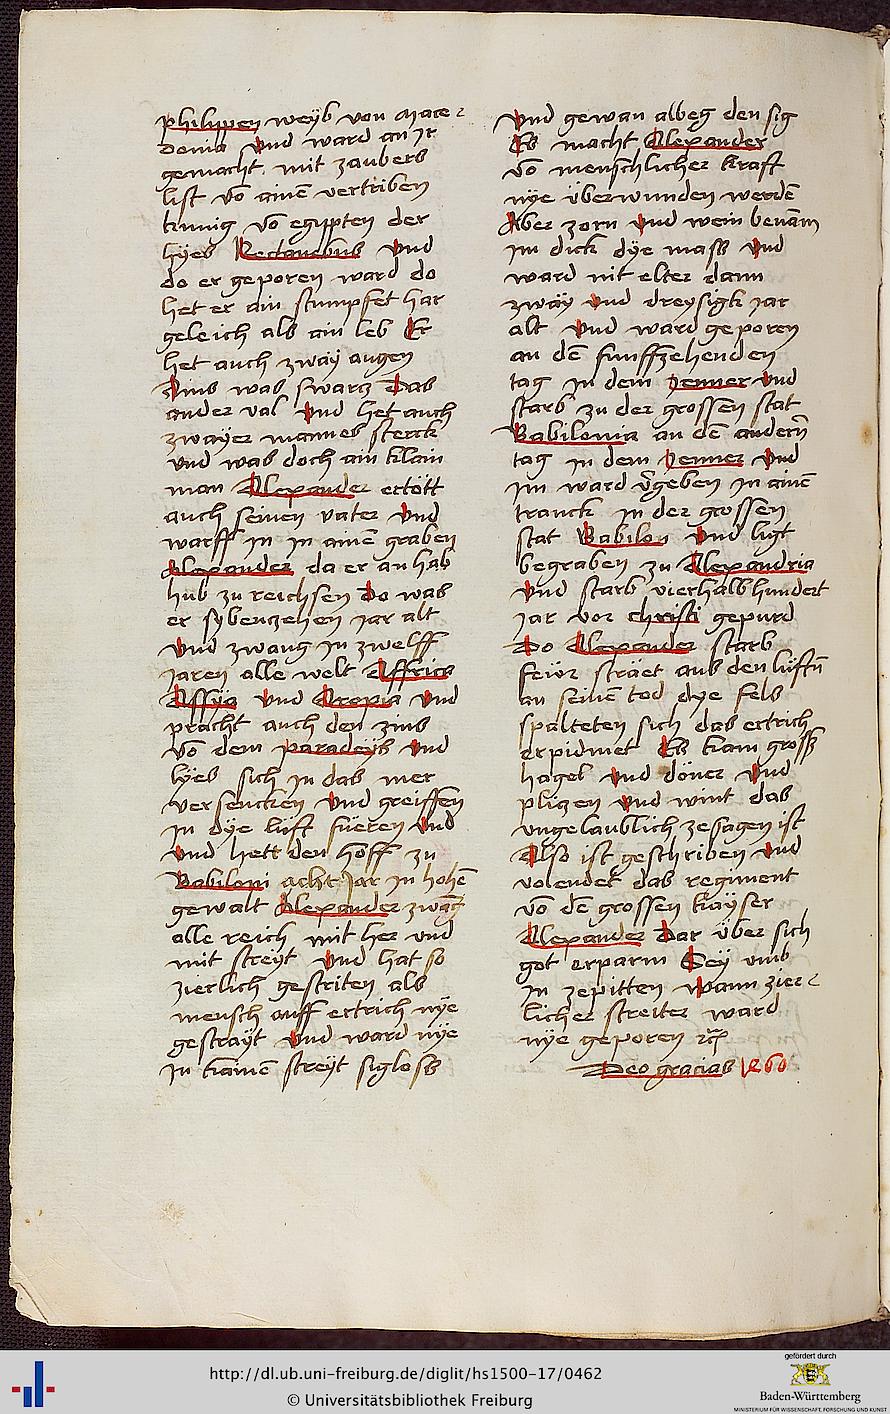 philippen weyb von Mace-
donia Vnd ward an Jr
gemacht mit zaubers
list võ ainem vertriben
kunig võ egypten der
hyes Nectanebus Vnd
do er geporen ward do
het er ain stumpfet har
geleich als ain leb Er
het auch zway augen
Ains was swarcz Das
ander val Vnd het auch
zwayer mannes sterck
vnd was doch ain klain
man Alexander ertött
auch seinen vater Vnd
warff in in ainen graben
Alexander da er an hab
hub zu reichsen Do was
er sybenzehen jar alt
Vnd zwang in zwelff
jaren alle welt Affrica
Assÿa Vnd Eropia Vnd
pracht auch den zins
võ dem paradeÿs Vnd
lÿes sich in das mer
versencken Vnd greiffen
in dÿe lüft füeren Vnd
Vnd hett den hoff zu
Babiloni acht Jar in hohẽ
gewalt Alexander zwãg
alle reich mit her vnd
mit streÿt Vnd hat so
zierlich gestriten als
mensch auff ertrich nÿe
gestraÿt Vnd ward nÿe
in kainẽ streÿt sigloss
Vnd gewan albeg den sig
Es macht Alexander
võ menschlicher kraft
nÿe überwunden werdẽ
Aber zorn Vnd wein benam
im dick dÿe mass Vnd
ward nit elter dann
zwaÿ Vnd dreysigk jar
alt Vnd ward geporen
an dẽ funffzehenden
tag in dem Jenner Vnd
starb zu der grossen stat
Babilonia an dẽ andern
tag in dem Jenner Vnd
im ward v̈geben in ainẽ
tranck in der grossen
stat Babilon Vnd ligt
begraben zu Alexandria
Vnd starb vierhalbhundert
jar vor christi gepurd
Do Alexander starb
feẅr sträet aus den lüftñ
an seinẽ tod dye fels
spalteten sich das ertrich
erpidmet Es kam gross
hagel Vnd döner Vnd
pliczen Vnd wint das
vngelaublich zesagen ist
Also ist geschriben Vnd
volendet das regiment
võ dẽ grossen kaÿser
Alexander Dar über sich
got erparm Seÿ vmb
in zepitten Wann zier-
licher streiter ward
nÿe geporen ꝛcͣ
Deo gracias 1460
http://dl.ub.uni-freiburg.de/diglit/hs1500-17/0462
© Universitätsbibliothek Freiburg
gefördert durch
Baden-Württemberg
MINISTERIUM FÜR WISSENSCHAFT, FORSCHUNG UND KUNST